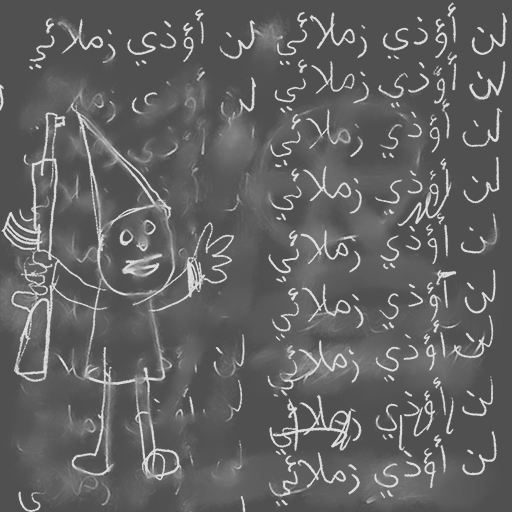 لن أؤذي زملائي لن أؤذي زملائي
لن أؤذي زملائي لن
لن أؤذي زملائي
لن أؤذي زملائي
لن أؤذي زملائي
لن أؤذي زملائي
لن أؤذي زملائي لن
لن أؤذي زملائي لن
لن أؤذي زملائي